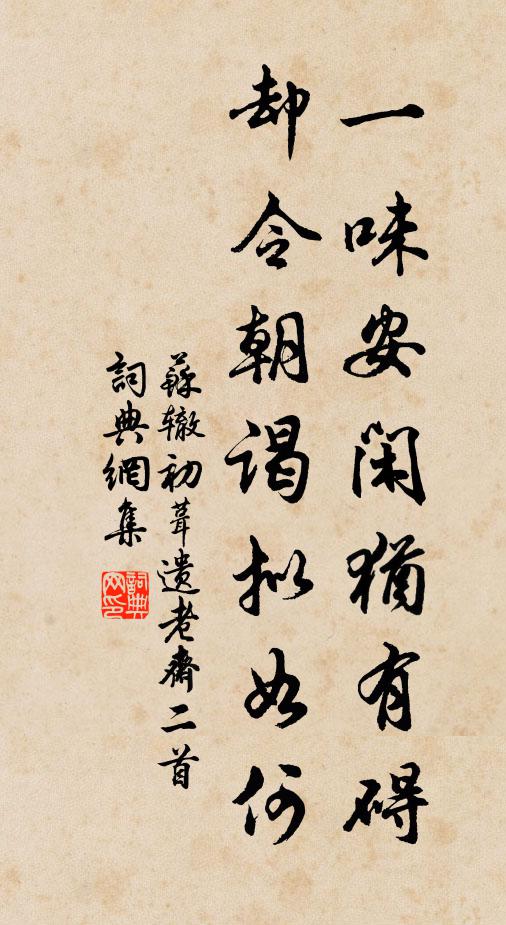 一味安闲猶有碍
却令朝谒拟如何
蘇辙初葺遺老齋二首
詞典網集
詞典网印